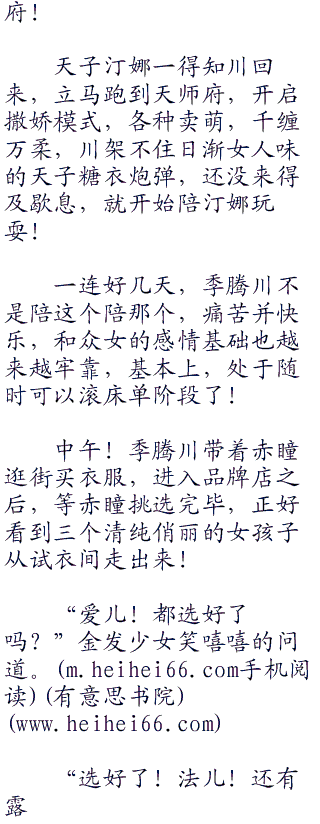 府！
天子汀娜一得知川回
来，立马跑到天师府，开启
撒娇模式，各种卖萌，千缠
万柔，川架不住日渐女人味
的天子糖衣炮弹，还没来得
及歇息，就开始陪汀娜玩
耍！
一连好几天，季腾川不
是陪这个陪那个，痛苦并快
乐，和众女的感情基础也越
来越牢靠，基本上，处于随
时可以滚床单阶段了！
中午！季腾川带着赤瞳
逛街买衣服，进入品牌店之
后，等赤瞳挑选完毕，正好
看到三个清纯俏丽的女孩子
从试衣间走出来！
“爱儿！都选好了
吗？”金发少女笑嘻嘻的问
道。(m.heihei66.com手机阅
读)(有意思书院)
(www.heihei66.com)
“选好了！法儿！还有
露